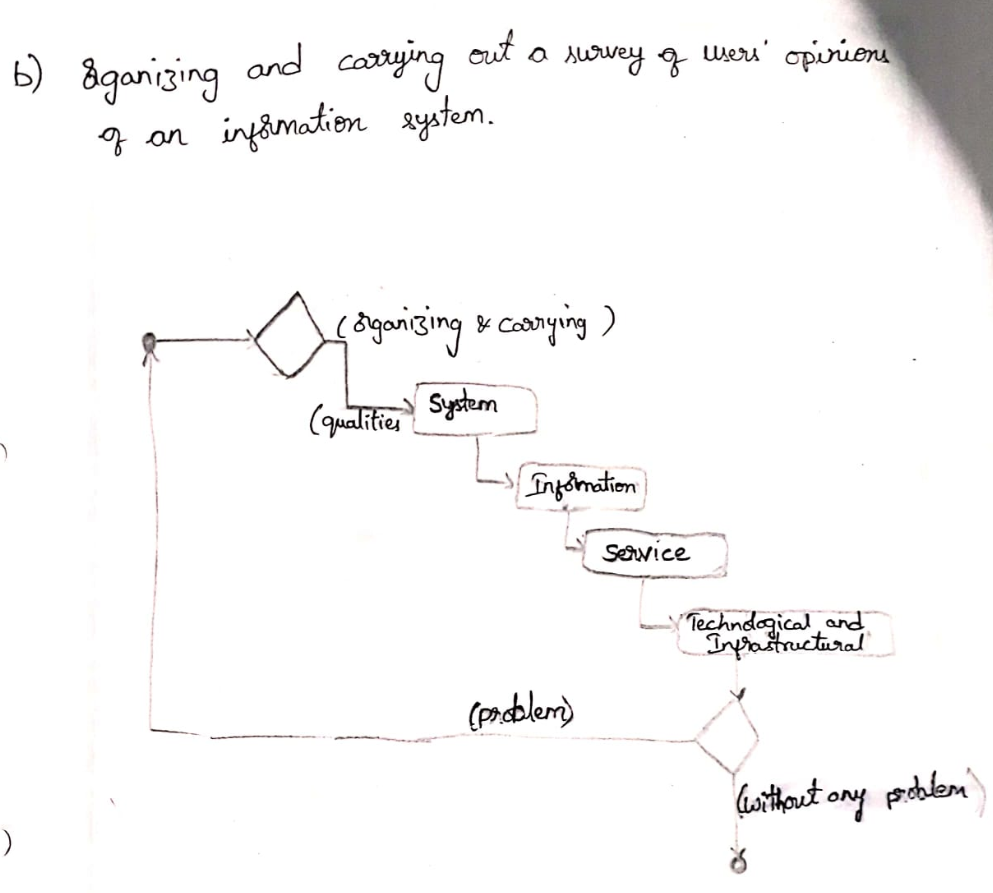 b) Organizing and carrying out a survey of users' opinions
of an information system.
(organizing & carrying)
(qualities
System
Information
Service
Technological and
Infrastructural
(problem)
(without any problem)